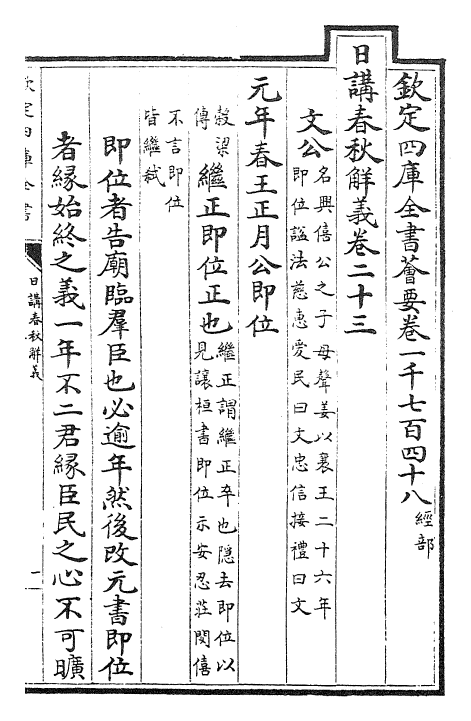 欽定四庫全書薈要卷一千七百四十八
經部
日講春秋解義卷二十三
文公
名興僖公之子母聲姜以襄王二十六年
即位諡法慈惠愛民曰文忠信接禮曰文
元年春王正月公即位
穀梁
傳
繼正即位正也
繼正謂繼正卒也隱去即位以
見讓桓書即位示安忍莊閔僖
不言即位
皆繼弒
即位者告廟臨羣臣也必逾年然後改元書即位
者緣始終之義一年不二君緣臣民之心不可曠
欽定四庫全書
日講春秋解義
一